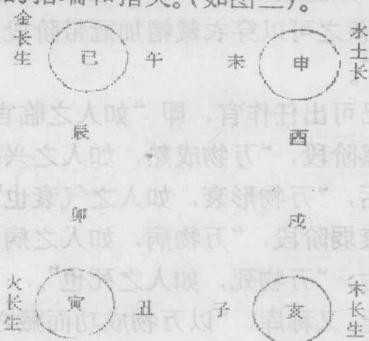 的指端和指尖。(如图三)。
金长生 巳 午 未 申 水土长
辰 酉
卯 戌
火长生 寅 丑 子 亥 木长生